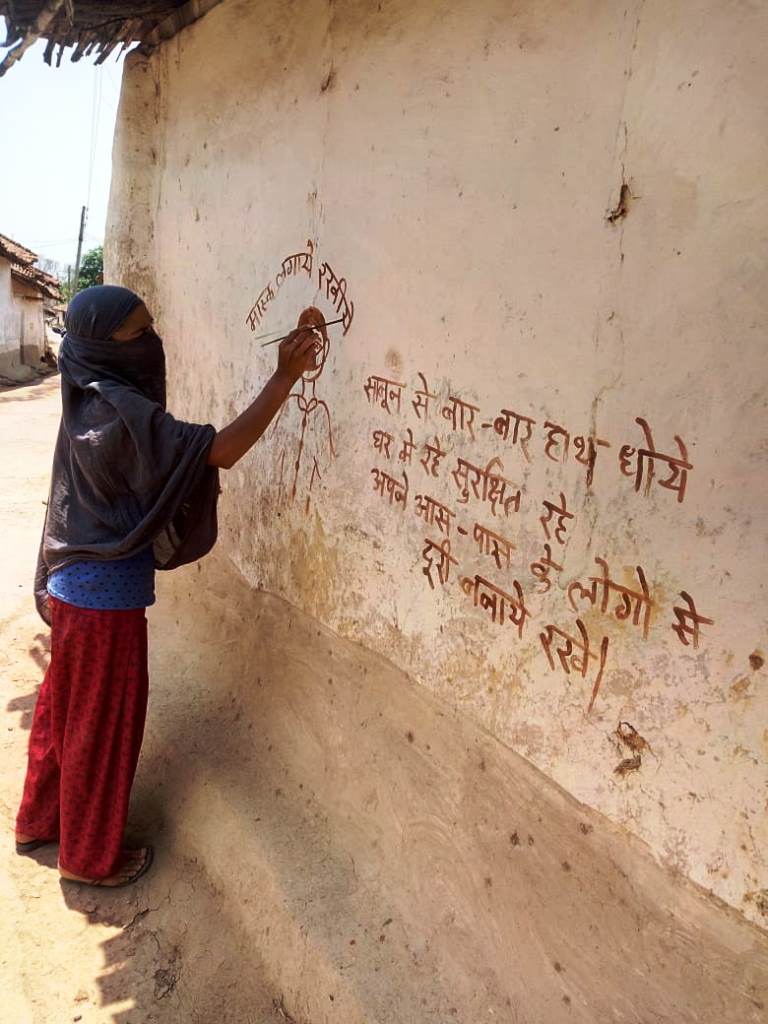 मास्क लगाये रखीये
साबुन से बार-बार हाथ धोये
घर मे रहे सुरक्षित रहे
अपने आस-पास के लोगो से
दूरी बनाये रखे।